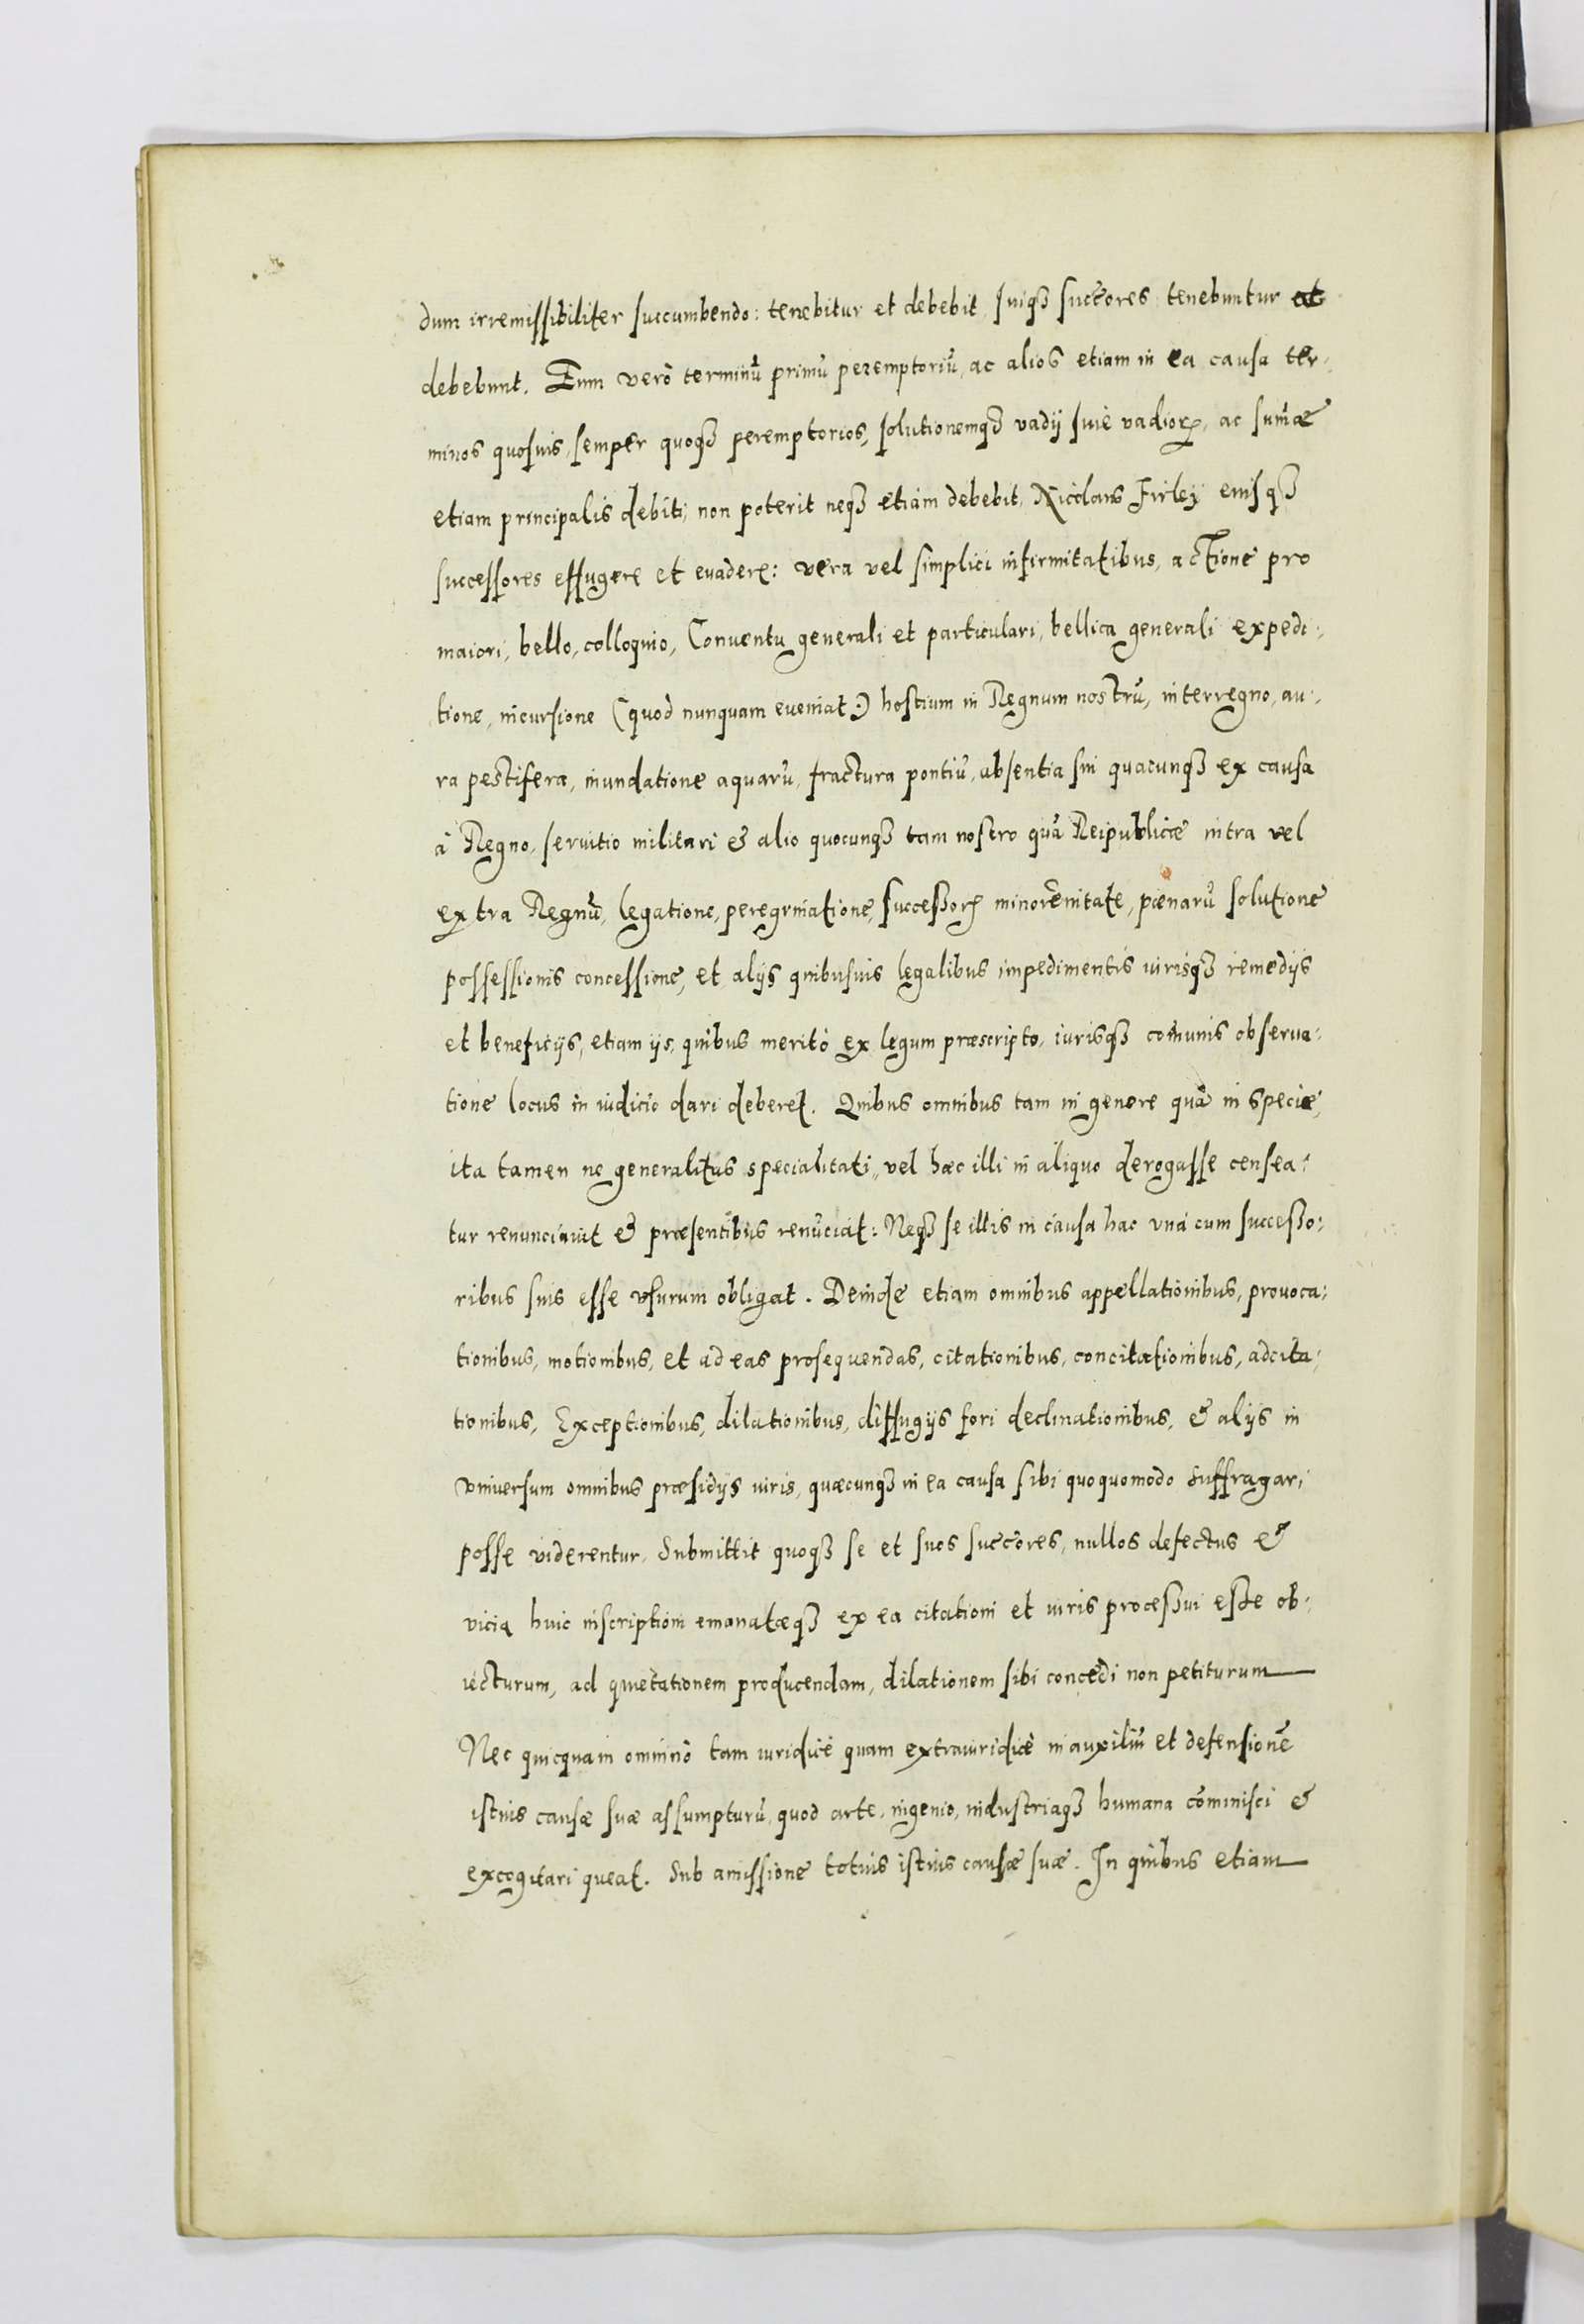 dum irremissibiliter succumbendo: tenebitur et debebit, suiqꝫ succ̄ores tenebuntur et
debebunt. Eum verò terminū primū peremptoriū, ac alios etiam in ea causa ter:
minos quosuis, semper quoqꝫ peremptorios, solutionemqꝫ vadij siue vadiorꝝ, ac sum̄æ
etiam principalis debiti, non poterit neqꝫ etiam debebit, Nicolaus Firlej eiusqꝫ
successores effugere et euadere: vera vel simplici infirmitatibus, actione pro
maiori, bello, colloquio, Conuentu generali et particulari, bellica generali expedi:
tione, incursione (quod nunquam eueniat:) hostium in Regnum nostrū, interregno, au:
ra pestifera, inundatione aquarū, fractura pontiū, absentia sui quacunqꝫ ex causa
à Regno, seruitio militari & alio quocunqꝫ tam nostro quā Reipublicæ intra vel
extra Regnū, legatione, peregrinatione, successorꝝ minorennitate, pœnarū solutione
possessionis concessione, et alijs quibusuis legalibus impedimentis iurisqꝫ remedijs
et beneficijs, etiam ijs, quibus meritò ex legum præscripto, iurisqꝫ com̄unis obserua:
tione locus in iudicio dari deberet. Quibus omnibus tam in genere quā in specie,
ita tamen ne generalitas specialitati, vel hæc illi in aliquo derogasse censea:
tur renunciauit & præsentibus renūciat: Neqꝫ se illis in causa hac vnà cum successo:
ribus suis esse vsurum obligat. Deinde etiam omnibus appellationibus, prouoca:
tionibus, motionibus, et ad eas prosequendas, citationibus, concitationibus, adcita:
tionibus, Exceptionibus, dilationibus, diffugijs fori declinationibus, & alijs in
vniuersum omnibus præsidijs iuris, quæcunqꝫ in ea causa sibi quoquomodo suffragari
posse viderentur. Submittit quoqꝫ se et suos succ̄ores, nullos defectus &
vicia huic inscriptioni emanatæqꝫ ex ea citationi et iuris processui esse ob:
iecturum, ad quietationem producendam, dilationem sibi concedi non petiturum
Nec quicquam omninò tam iuridicè quam extraiuridicè in auxiliū et defensionē
istius causæ suæ assumpturū, quod arte, ingenio, industriaqꝫ humana com̄inisci &
excogitari queat. Sub amissione totius istius causæ suæ. In quibus etiam